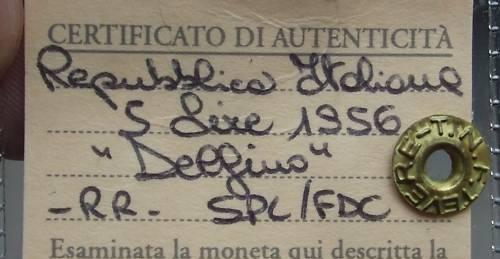 CERTIFICATO DI AUTENTICITÀ
Repubblica Italiana
5 Lire 1956
"Delfino"
-RR- SPL/FDC
Esaminata la moneta qui descritta la